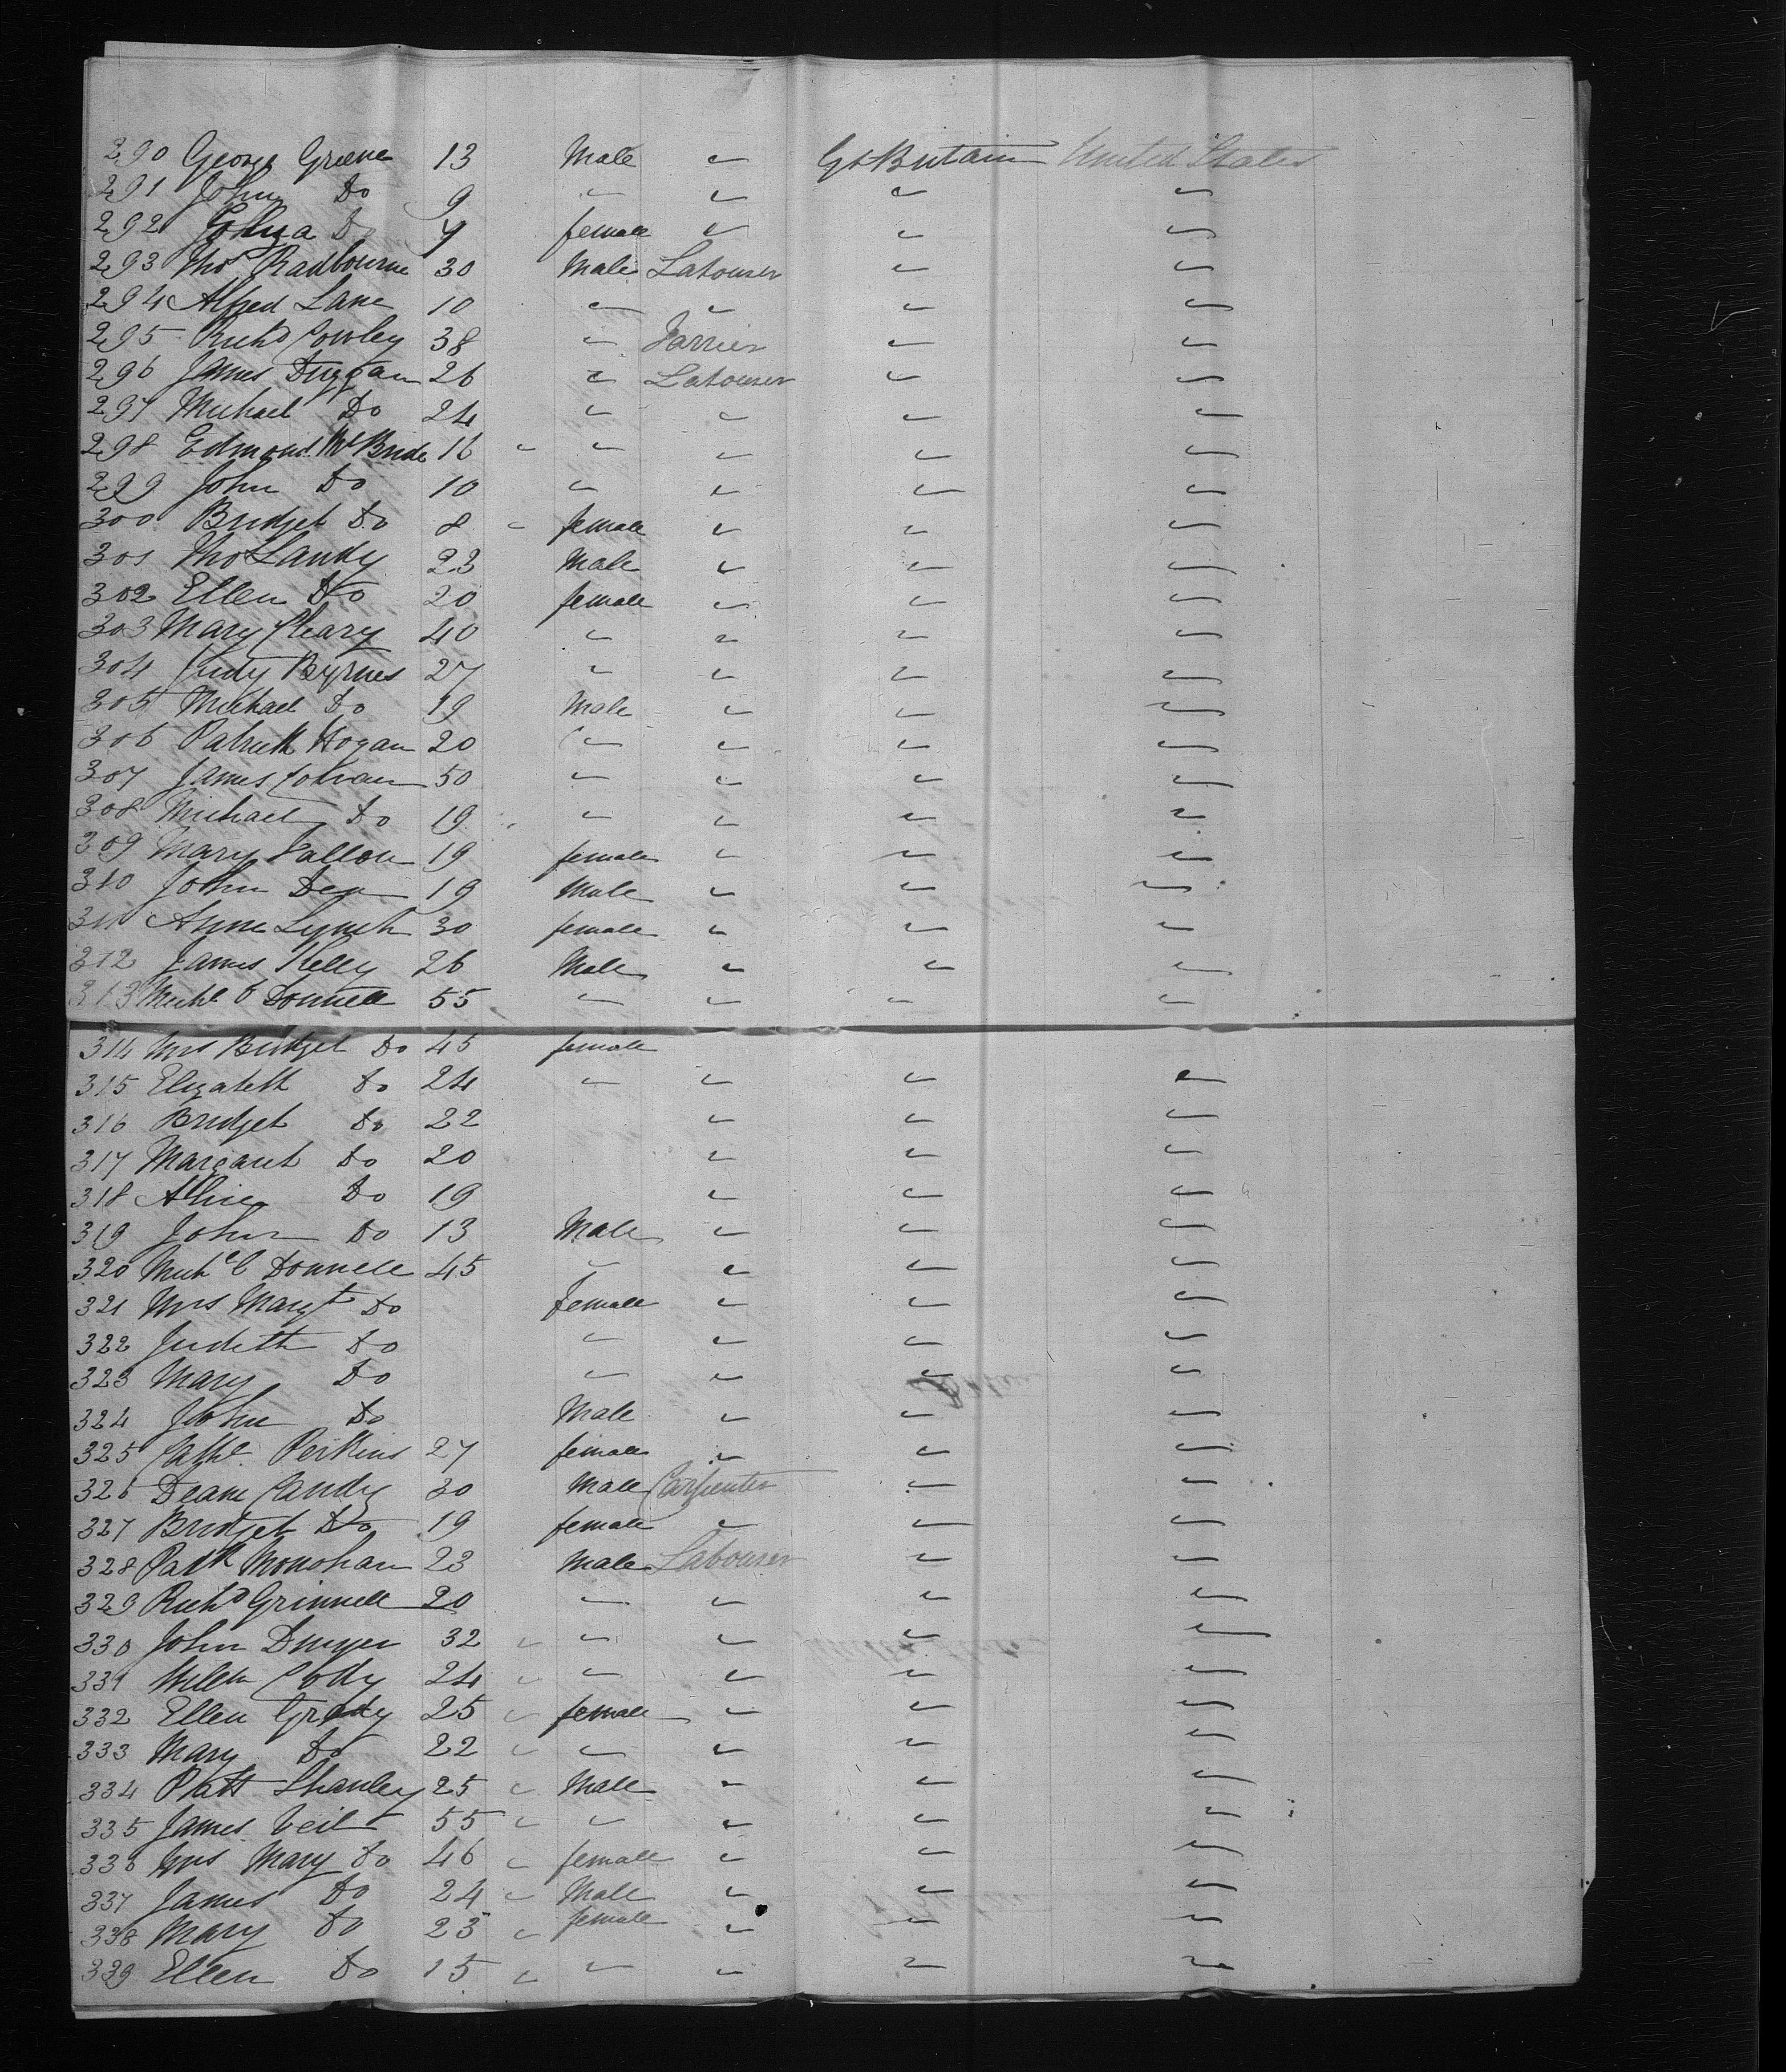 290 George Greene 13 Male " Gt Britain United States
291 John Do 9 " " " "
292 Eliza Do 7 female " " "
293 Thos Radbourne 30 Male Labourer " "
294 Alfred Lane 10 " " " "
295 Richd Cowley 38 " Farrier " "
296 James Duggan 26 " Labourer " "
297 Michael Do 24 " " " "
298 Edmond McBride 16 " " " " "
299 John Do 10 " " " "
300 Bridget Do 8 " female " " "
301 Tho Landy 23 Male " " "
302 Ellen Do 20 female " " "
303 Mary Cleary 40 " " " "
304 Judy Byrnes 27 " " " "
305 Michael Do 19 Male " " "
306 Patrick Hogan 20 " " " "
307 James 50 " " " "
308 Michael Do 19 " " " "
309 Mary Fallon 19 female " " "
310 John 19 Male " " "
311 Anne Lynch 30 female " " "
312 James Kelly 26 Male " " "
313 Michl O Donnell 55 " " " "
314 Mrs Bridget Do 45 female
315 Elizabeth Do 24 " " " "
316 Bridget Do 22 " " "
317 Margaret Do 20 " " "
318 Alice Do 19 " " "
319 John Do 13 Male " " "
320 Michl O Donnell 45 " " " "
321 Mrs Margt Do female " " "
322 Judith Do " " " "
323 Mary Do " " " "
324 John Do Male " " "
325 Cathe. Perkins 27 female " " "
326 Deane Candy 30 Male Carpenter " "
327 Bridget Do 19 female " " "
328 Patk Monohan 23 Male Labourer " "
329 Richd Grinnell 20 " " " "
330 John Dwyer 32 " " " " "
331 Willm Cody 24 " " " " "
332 Ellen Grady 25 " female " " "
333 Mary Do 22 " " " " "
334 Patt Shanley 25 " Male " " "
335 James 55 " " " " "
336 Mrs Mary Do 46 " female " " "
337 James Do 24 " Male " " "
338 Mary Do 23 " female " " "
339 Ellen Do 15 " " " " "